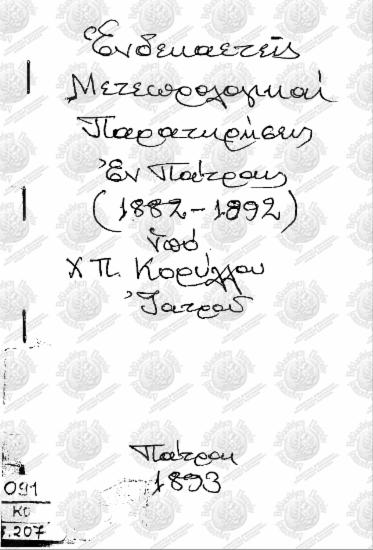 Ἑνδεκαετεῖς
Μετεωρολογικαί
Παρατηρήσεις
Ἐν Πάτραις
(1882-1892)
ὑπό
Χ Π. Κορύλλου
Ἰατροῦ
Πάτραι
1893
091
ΚΟ
5.207